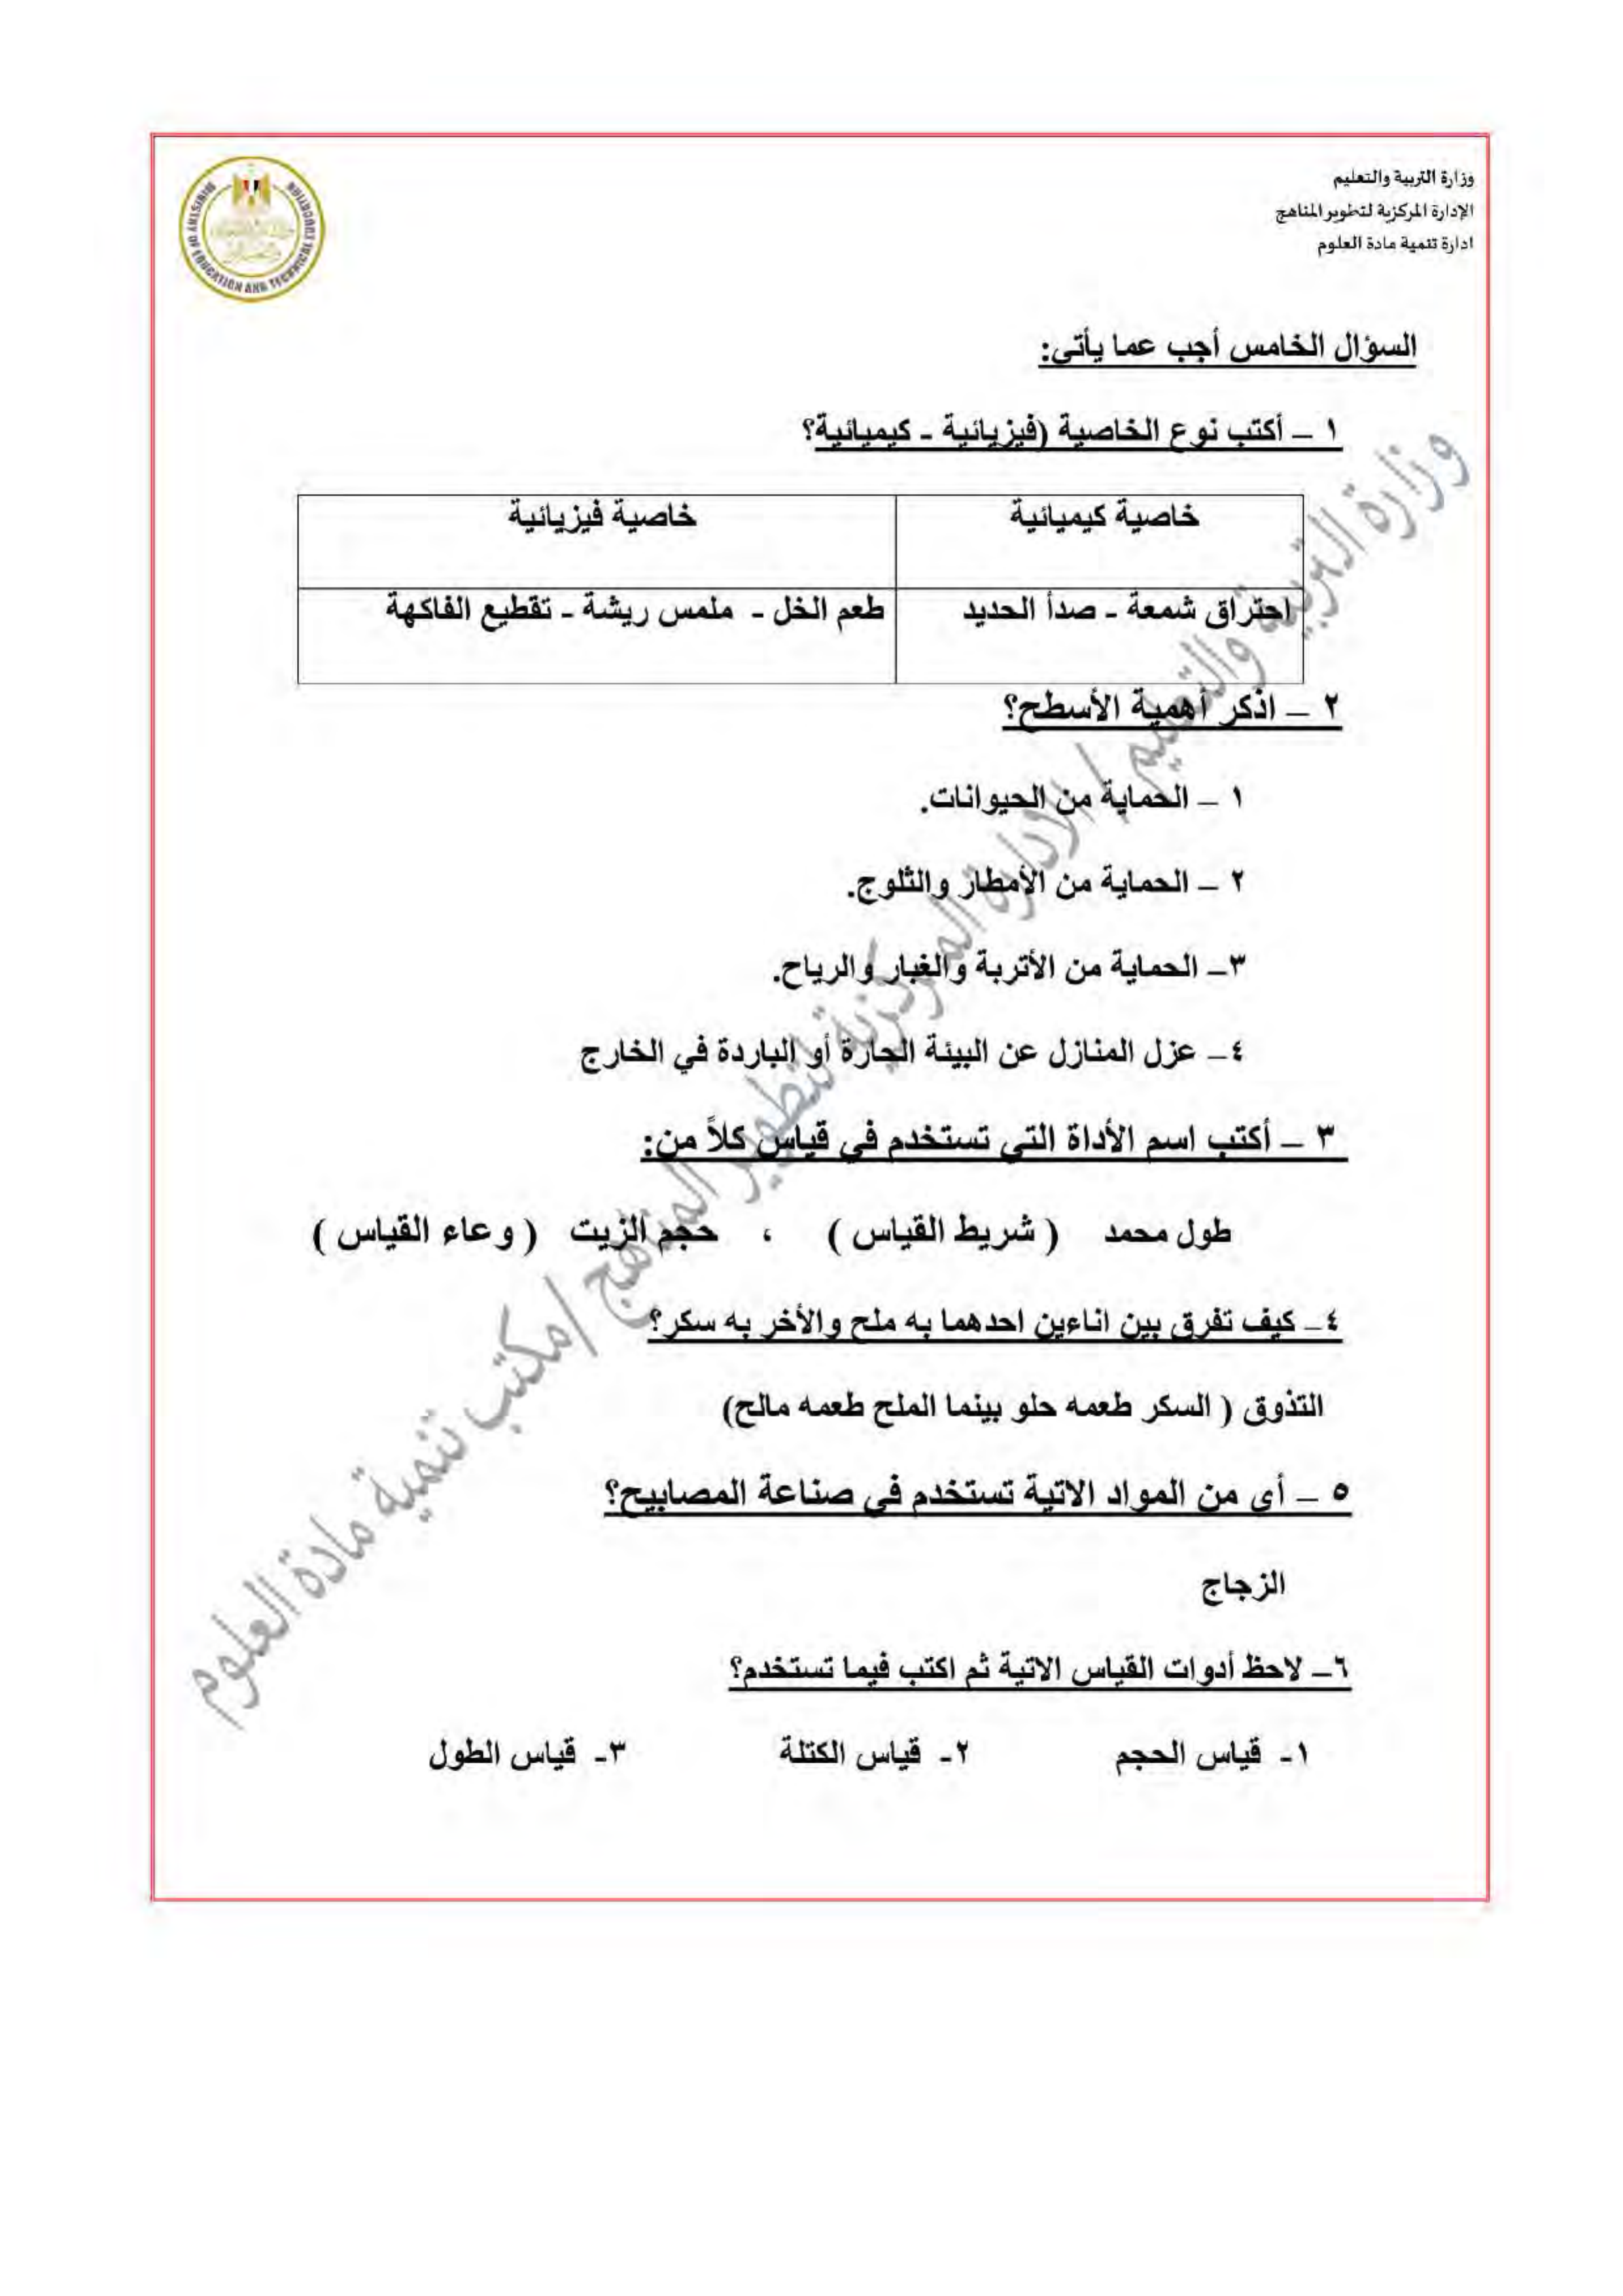 وزارة التربية والتعليم
الإدارة المركزية لتطوير المناهج
ادارة تنمية مادة العلوم
MINISTRY OF EDUCATION AND TECHNICAL EDUCATION
السؤال الخامس أجب عما يأتي:
١ – أكتب نوع الخاصية (فيزيائية - كيميائية؟
خاصية كيميائية خاصية فيزيائية
احتراق شمعة - صدأ الحديد طعم الخل - ملمس ريشة - تقطيع الفاكهة
٢ – اذكر أهمية الأسطح؟
١ – الحماية من الحيوانات.
٢ – الحماية من الأمطار والثلوج.
٣– الحماية من الأتربة والغبار والرياح.
٤– عزل المنازل عن البيئة الحارة أو الباردة في الخارج
٣ – أكتب اسم الأداة التي تستخدم في قياس كلاً من:
طول محمد ( شريط القياس ) ، حجم الزيت ( وعاء القياس )
٤– كيف تفرق بين اناءين احدهما به ملح والأخر به سكر؟
التذوق ( السكر طعمه حلو بينما الملح طعمه مالح)
٥ – أي من المواد الاتية تستخدم في صناعة المصابيح؟
الزجاج
٦– لاحظ أدوات القياس الاتية ثم اكتب فيما تستخدم؟
١- قياس الحجم ٢- قياس الكتلة ٣- قياس الطول
وزارة التربية والتعليم / الادارة المركزية لتطوير المناهج / مكتب تنمية مادة العلوم